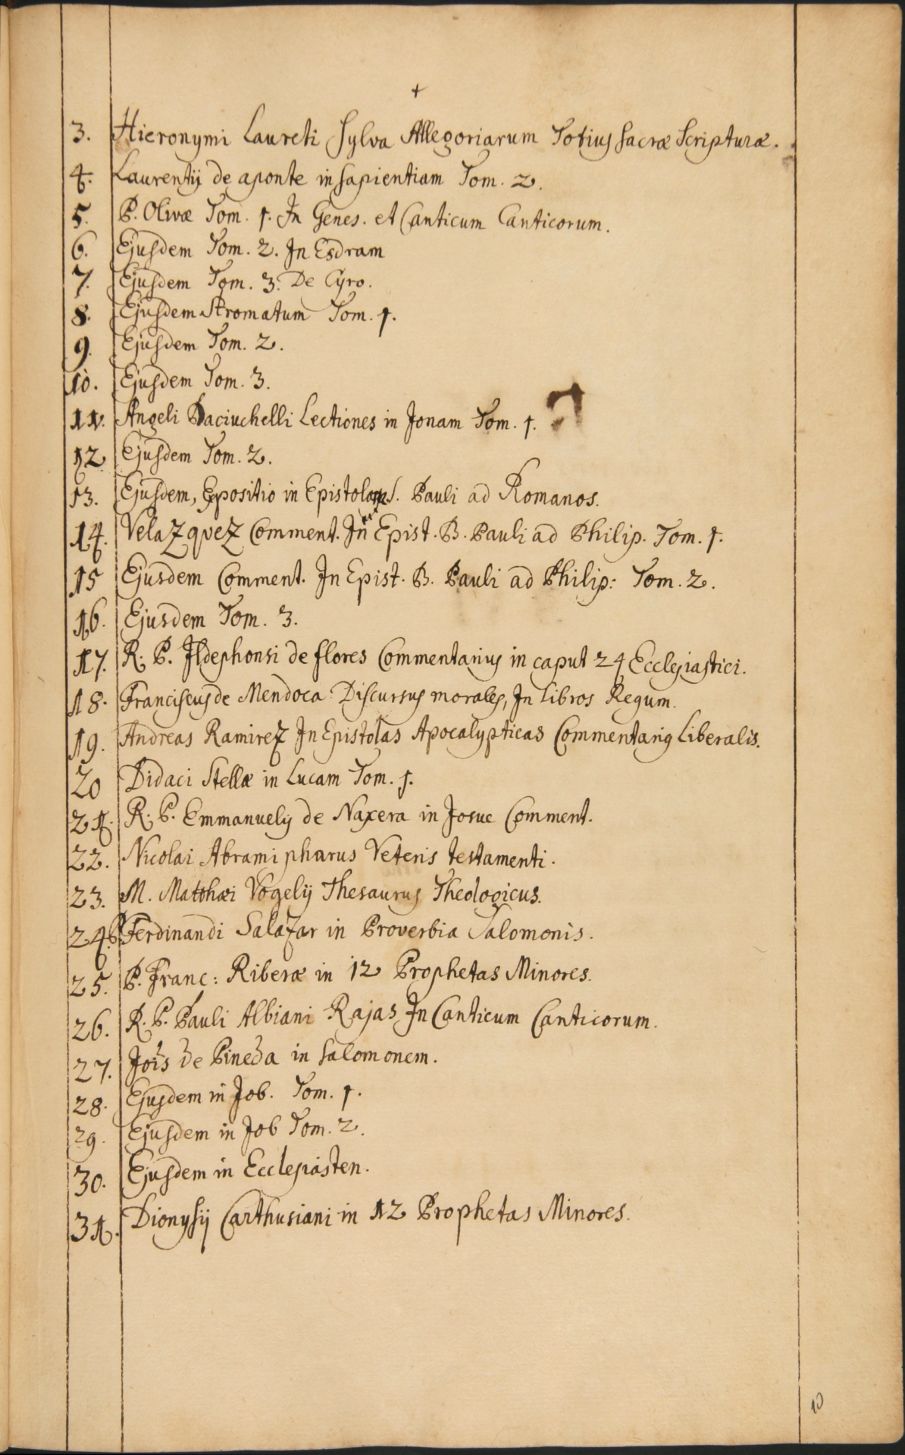 +
3. Hieronymi Laureti Sylva Allegoriarum Totius Sacræ Scripturæ.
4. Laurentij de aponte in sapientiam Tom. 2.
5. P. Olivæ Tom. 1. In Genes. et Canticum Canticorum.
6. Ejusdem Tom. 2. In Esdram
7. Ejusdem Tom. 3. De Cyro.
8. Ejusdem Stromatum Tom. 1.
9. Ejusdem Tom. 2.
10. Ejusdem Tom. 3.
11. Angeli Paciuchelli Lectiones in Jonam Tom. 1.
12 Ejusdem Tom. 2.
13. Ejusdem, Expositio in Epistolam S. Pauli ad Romanos.
14. Velazquez Comment. In Epist. B. Pauli ad Philip. Tom. 1.
15 Ejusdem Comment. In Epist. B. Pauli ad Philip: Tom. 2.
16. Ejusdem Tom. 3.
17. R. P. Ildephonsi de flores Commentarius in caput 24 Ecclesiastici.
18. Franciscus de Mendoca Discursus morales, In Libros Regum.
19. Andreas Ramirez In Epistolas Apocalypticas Commentarius Liberalis.
20 Didaci Stellæ in Lucam Tom. 1.
21. R. P. Emmanuelis de Naxera in Josue Comment.
22. Nicolai Abrami pharus Veteris testamenti.
23. M. Matthæi Vogelij Thesaurus Theologicus.
24. Ferdinandi Salazar in Proverbia Salomonis.
25. P. Franc: Riberæ in 12 Prophetas Minores.
26. R. P. Pauli Albiani Rajas In Canticum Canticorum.
27. Jois de Pineda in Salomonem.
28. Ejusdem in Job. Tom. 1.
29. Ejusdem in Job Tom. 2.
30. Ejusdem in Ecclesiasten.
31. Dionysij Carthusiani in 12 Prophetas Minores.
10